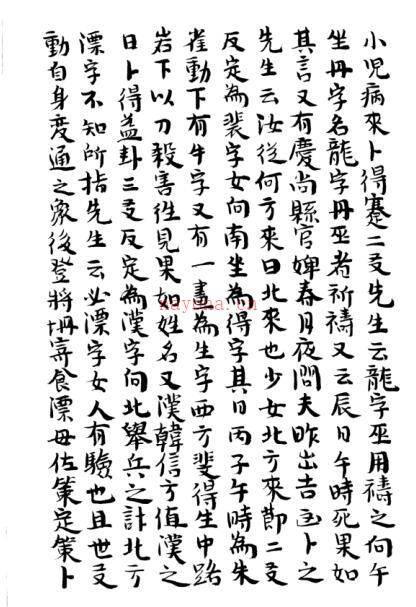 小児病來卜得蹇二爻先生云龍字巫用禱之向午
坐丹字名龍字丹巫者祈禱又云辰日午時死果如
其言又有慶尚縣官婢春月夜問夫昨出吉凶卜之
先生云汝從何方來曰北來也少女北方來節二爻
反定為裴字女向南坐為得字其日丙子午時為朱
雀動下有牛字又有一畫為生字西方斐得生中路
岩下以刀殺害徃見果如姓名又漢韓信方值漢之
日卜得益卦三爻反定為漢字向北擧兵之計北方
漂字不知所指先生云必漂字女人有驗也且世爻
動自身变通之象後登將壇寄食漂母佐策定策卜